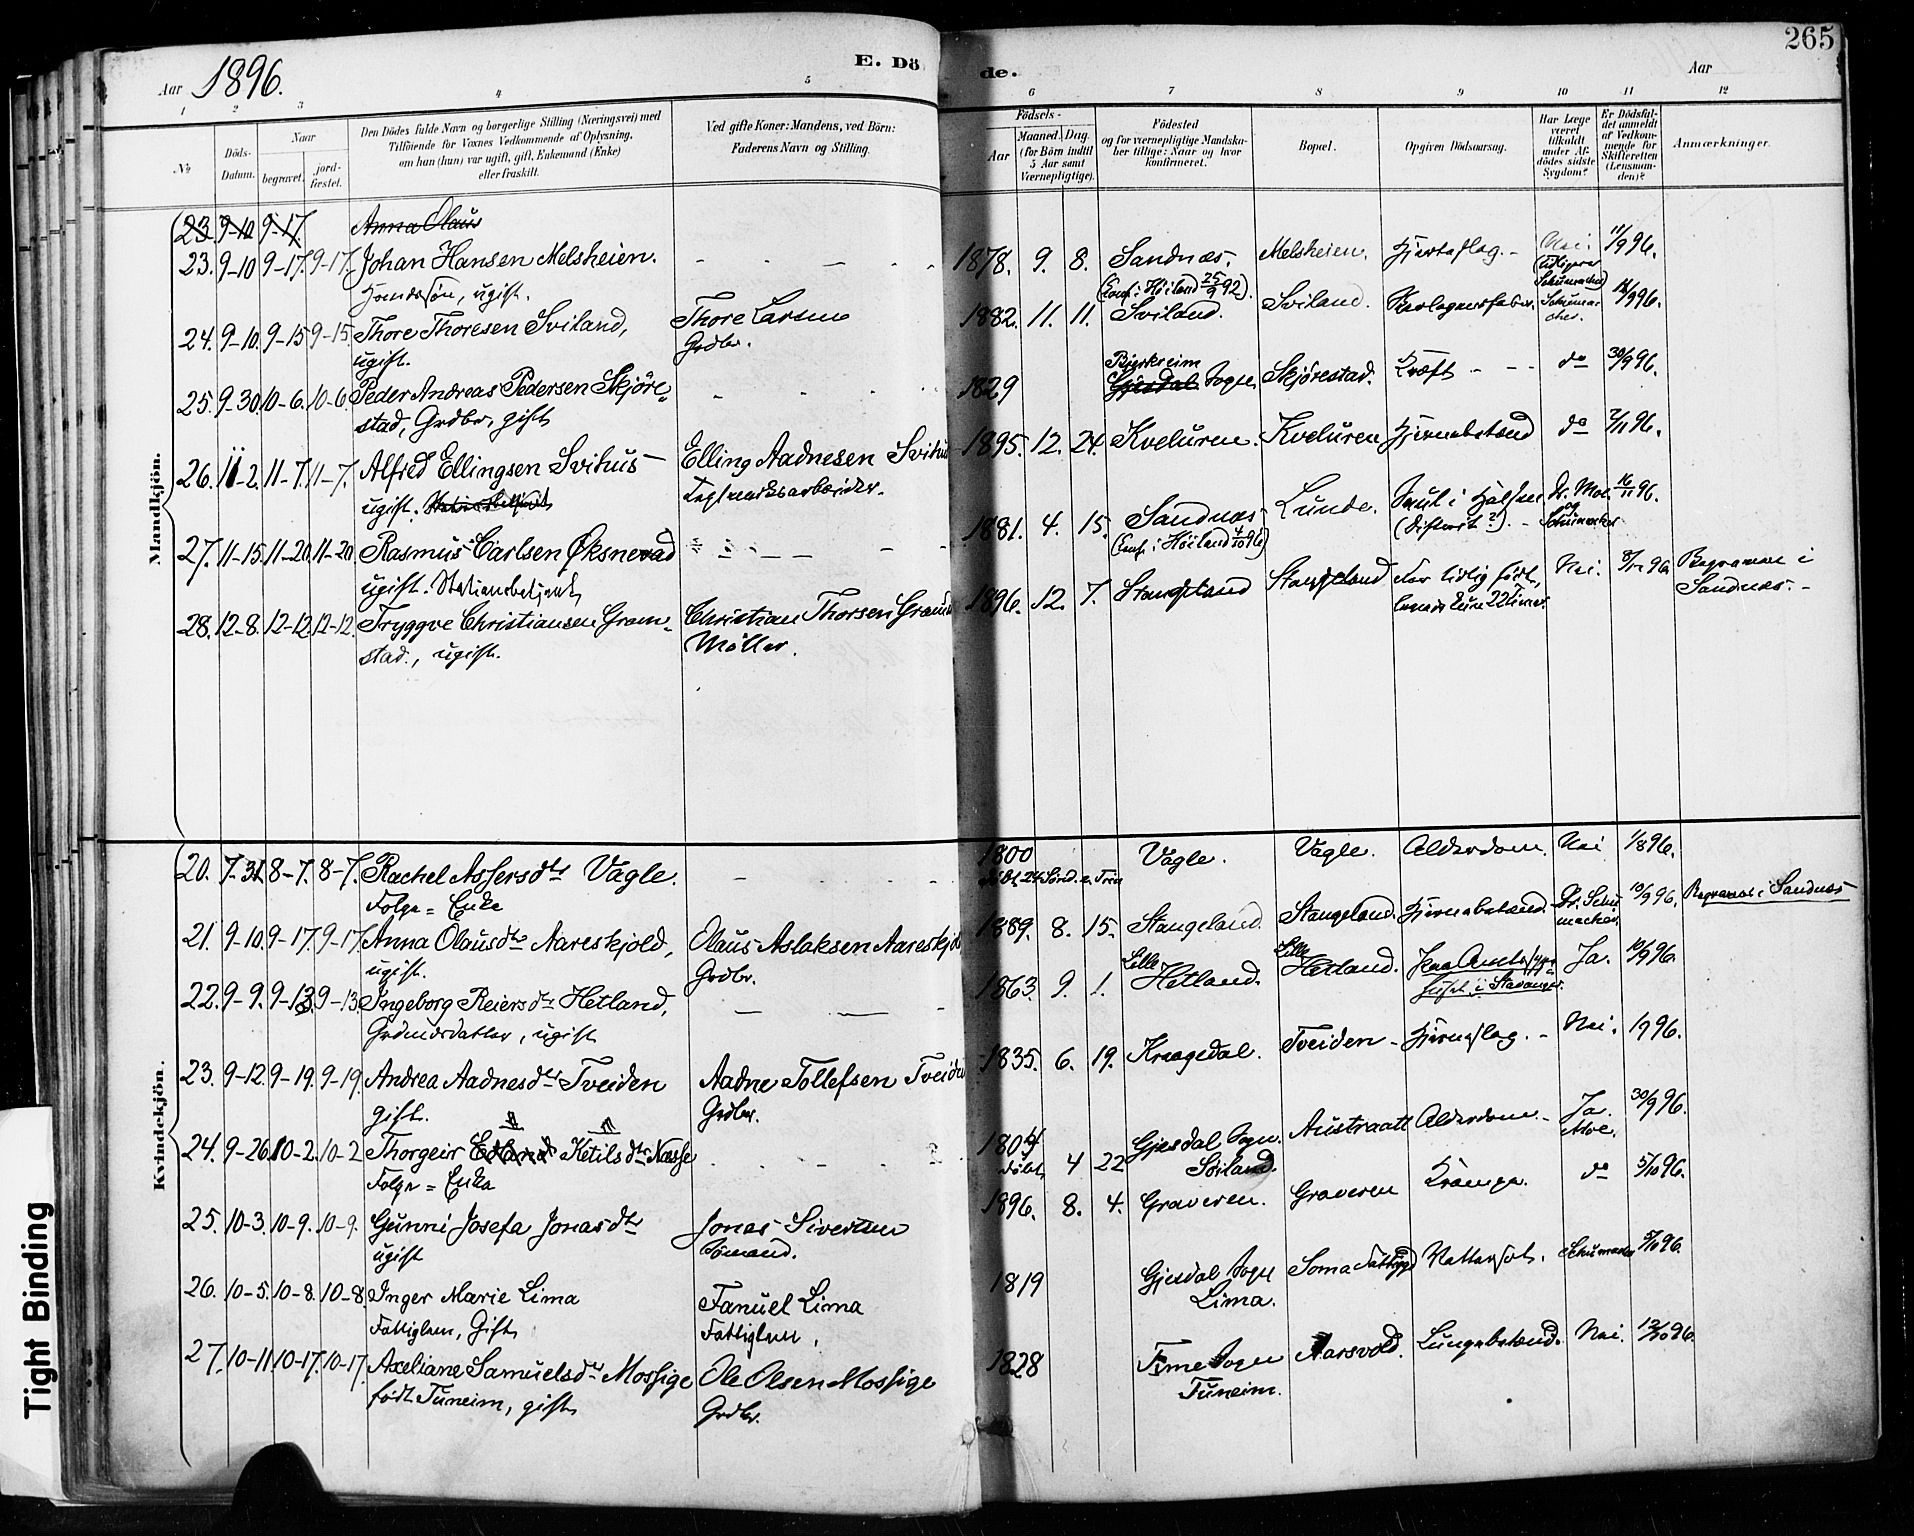 265
Aar 1896.
E. Dö de.
Aar
1 2 3 4 5 6 7 8 9 10 11 12
№
Döds-Datum.
Naar
begravet.
jord-fæstet.
Den Dödes fulde Navn og borgerlige Stilling (Næringsvei) med
Tilföiende for Voxnes Vedkommende af Oplysning,
om han (hun) var ugift, gift, Enkemand (Enke)
eller fraskilt.
Ved gifte Koner: Mandens, ved Börn:
Faderens Navn og Stilling.
Födsels-
Aar
Maaned. Dag.
(for Börn indtil
5 Aar samt
Værnepligtige).
Födested
og for værnepligtige Mandska-
ber tillige: Naar og hvor
konfirmeret.
Bopæl.
Opgiven Dödsaarsag.
Har Læge
været
tilkaldt
under Af-
dödes sidste
Sygdom?
Er Dödsfal-
det anmeldt
af Vedkom-
mende for
Skifteretten
(Lensman-
den)?
Anmærkninger.
Mandkjön.
23. 9-10 9-17 Anna Olaus
23. 9-10 9-17. 9-17. Johan Hansen Melsheien. 1878. 9. 8. Sandnæs. Melsheien. Hjerteslag. Nei. 11/9 96.
ugift. (Conf. i Höiland 25/9 92). (tidligere Schumacher)
24. 9-10. 9-15 9-15. Thore Thoresen Sviland, Thore Larsen 1882. 11. 11. Sviland. Sviland. Skarlagensfeber. Schumacher. 12/9 96.
ugift. Grdbr.
25. 9-30. 10-6. 10-6. Peder Andreas Pedersen Skjöre- 1829 Bjerkreim Gjesdal Sogn Skjörestad. Kræft do 30/9 96.
stad, Grdbr, gift
26. 11-2. 11-7. 11-7. Alfred Ellingsen Svihus Elling Aadnesen Svihus 1895. 12. 24. Kveluren. Kveluren Hjernebetænd do 2/11 96.
ugift. Teglværksarbeider.
27. 11-15. 11-20. 11-20. Rasmus Carlsen Øksnevad 1881. 4. 15. Sandnæs Lunde. i Halsen Dr. Moe 16/11 96.
ugift. Stationsbetjent (Conf. i Höiland 4/10 96) (Difterit?). og Schumacher
28. 12-8. 12-12. 12-12. Tryggve Christiansen Gram- Christian Thorsen Gramst 1896. 12. 7. Stangeland Stangeland For tidlig födt, Nei. 8/12 96. Begravet i
stad., ugift. Möller. 22 timer. Sandnæs.
Kvindekjön.
20. 7-31. 8-7. 8-7. Rachel Assersdtr Vagle. 1800 Vagle. Vagle. Alderdom. Nei 1/8 96.
Folge = Enke
21. 9-10. 9-17. 9-17. Anna Olausdtr Aareskjold, Olaus Aslaksen Aareskjold 1889. 8. 15. Stangeland. Stangeland. Hjernebetænd. Dr. Schumacher. 10/9 96. Begravet i Sandnæs
ugift. Grdbr.
22. 9-9. 9-13. 9-13. Ingeborg Reiersdtr Hetland, 1863. 9. 1. Lille Hetland. Lille Hetland. i Stavanger. Ja. 10/9 96.
Grdmdsdatter, ugift
23. 9-12. 9-19. 9-19. Andrea Aadnesdtr Tveiden Aadne Tollefsen Tveiden 1835. 6. 19. Kragedal. Tveiden Hjerneslag. Nei. 96.
gift. Grdbr.
24. 9-26. 10-2. 10-2 Thorgeir Ketilsdtr Næsse 1804 4 22 Gjesdal Sogn. Söiland. Austraatt Alderdom. Ja. Moe. 30/9 96.
Folge = Enke döbt
25. 10-3. 10-9. 10-9. Gunni Josefa Jonasdtr Jonas Sivertsen 1896. 8. 4. Graveren. Graveren Krampe. do 5/10 96.
ugift Sömand.
26. 10-5. 10-8. 10-8. Inger Marie Lima Fanuel Lima 1819 Gjesdal Sogn Lima. Soma Vattersot. Schumacher 5/10 96.
Fattiglem, Gift Fattiglem,
27. 10-11. 10-17. 10-17. Axeliane Samuelsdtr Mossige Ole Olsen Mossige 1828 Time Sogn Tuneim. Aarsvold. Lungebetænd. Nei. 12/10 96.
födt Tuneim, gift Grdbr.
Tight Binding